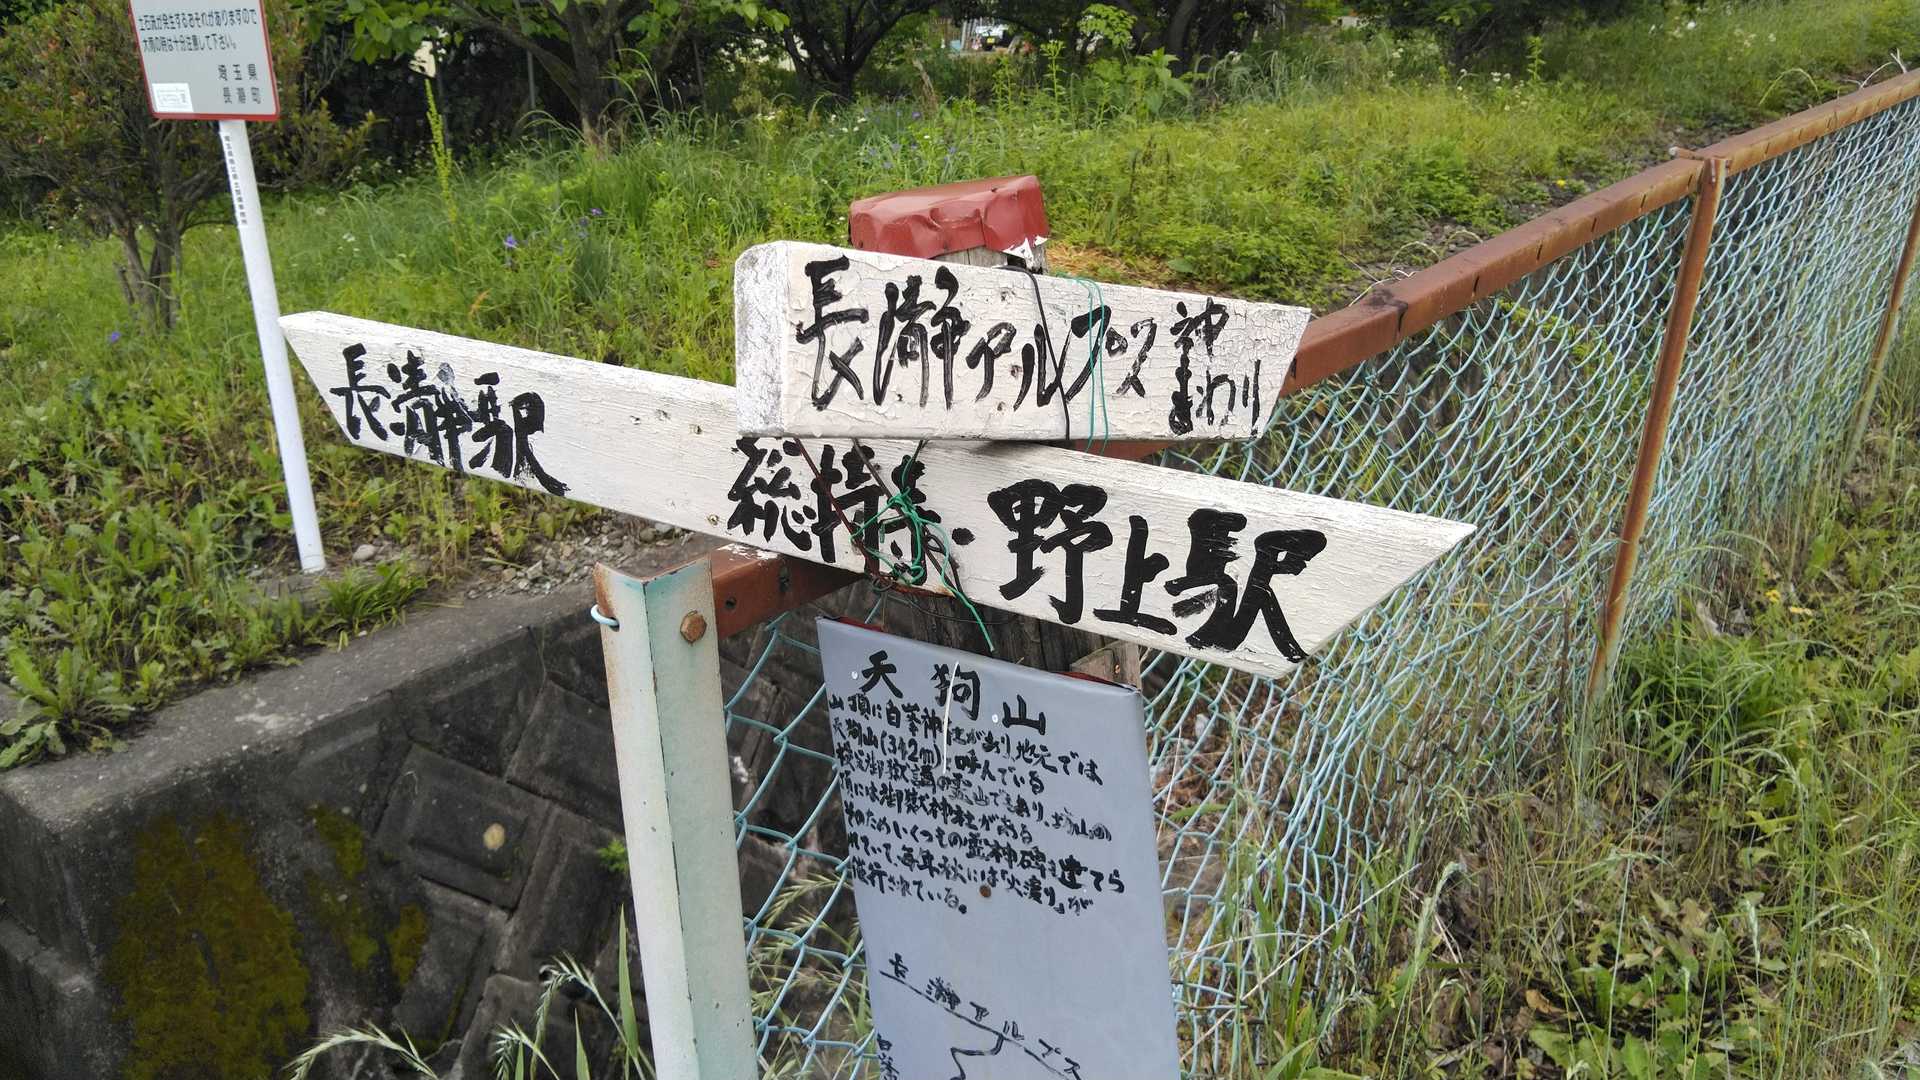 土石流が発生するおそれがありますので
大雨の時は十分注意して下さい。
埼玉県
長瀞町
長瀞アルプス
神まわり
長瀞駅
総持寺・野上駅
天狗山
山頂に白峯神社があり、地元では
天狗山(342m)と呼んでいる
御嶽講の霊山でもあり、宝登山の
頂には御嶽神社がある
そのためいくつもの霊神碑も建てら
れていて、毎年秋には「火渡り」が
催行されている。
長瀞アルプス